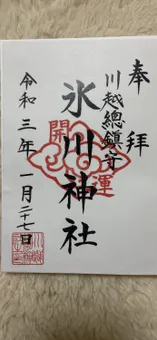 奉拝
川越總鎮守
氷川神社
開運
令和三年一月二十七日